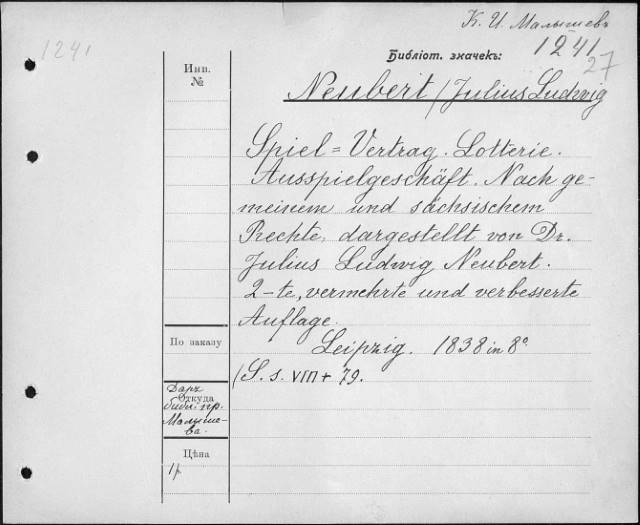 К. И. Малышевъ
1241
Библіот. значекъ:
1241
27
Инв.
№
Neubert / Julius Ludwig
Spiel=Vertrag. Lotterie.
Ausspielgeschäft. Nach ge-
meinem und sächsischem
Rechte, dargestellt von Dr.
Julius Ludwig Neubert.
2-te, vermehrte und verbesserte
Auflage.
Leipzig. 1838 in 8°
(S. s. VIII + 79.
По заказу
Даръ
Откуда
библ. пр.
Малыше-
ва.
Цѣна
1 р